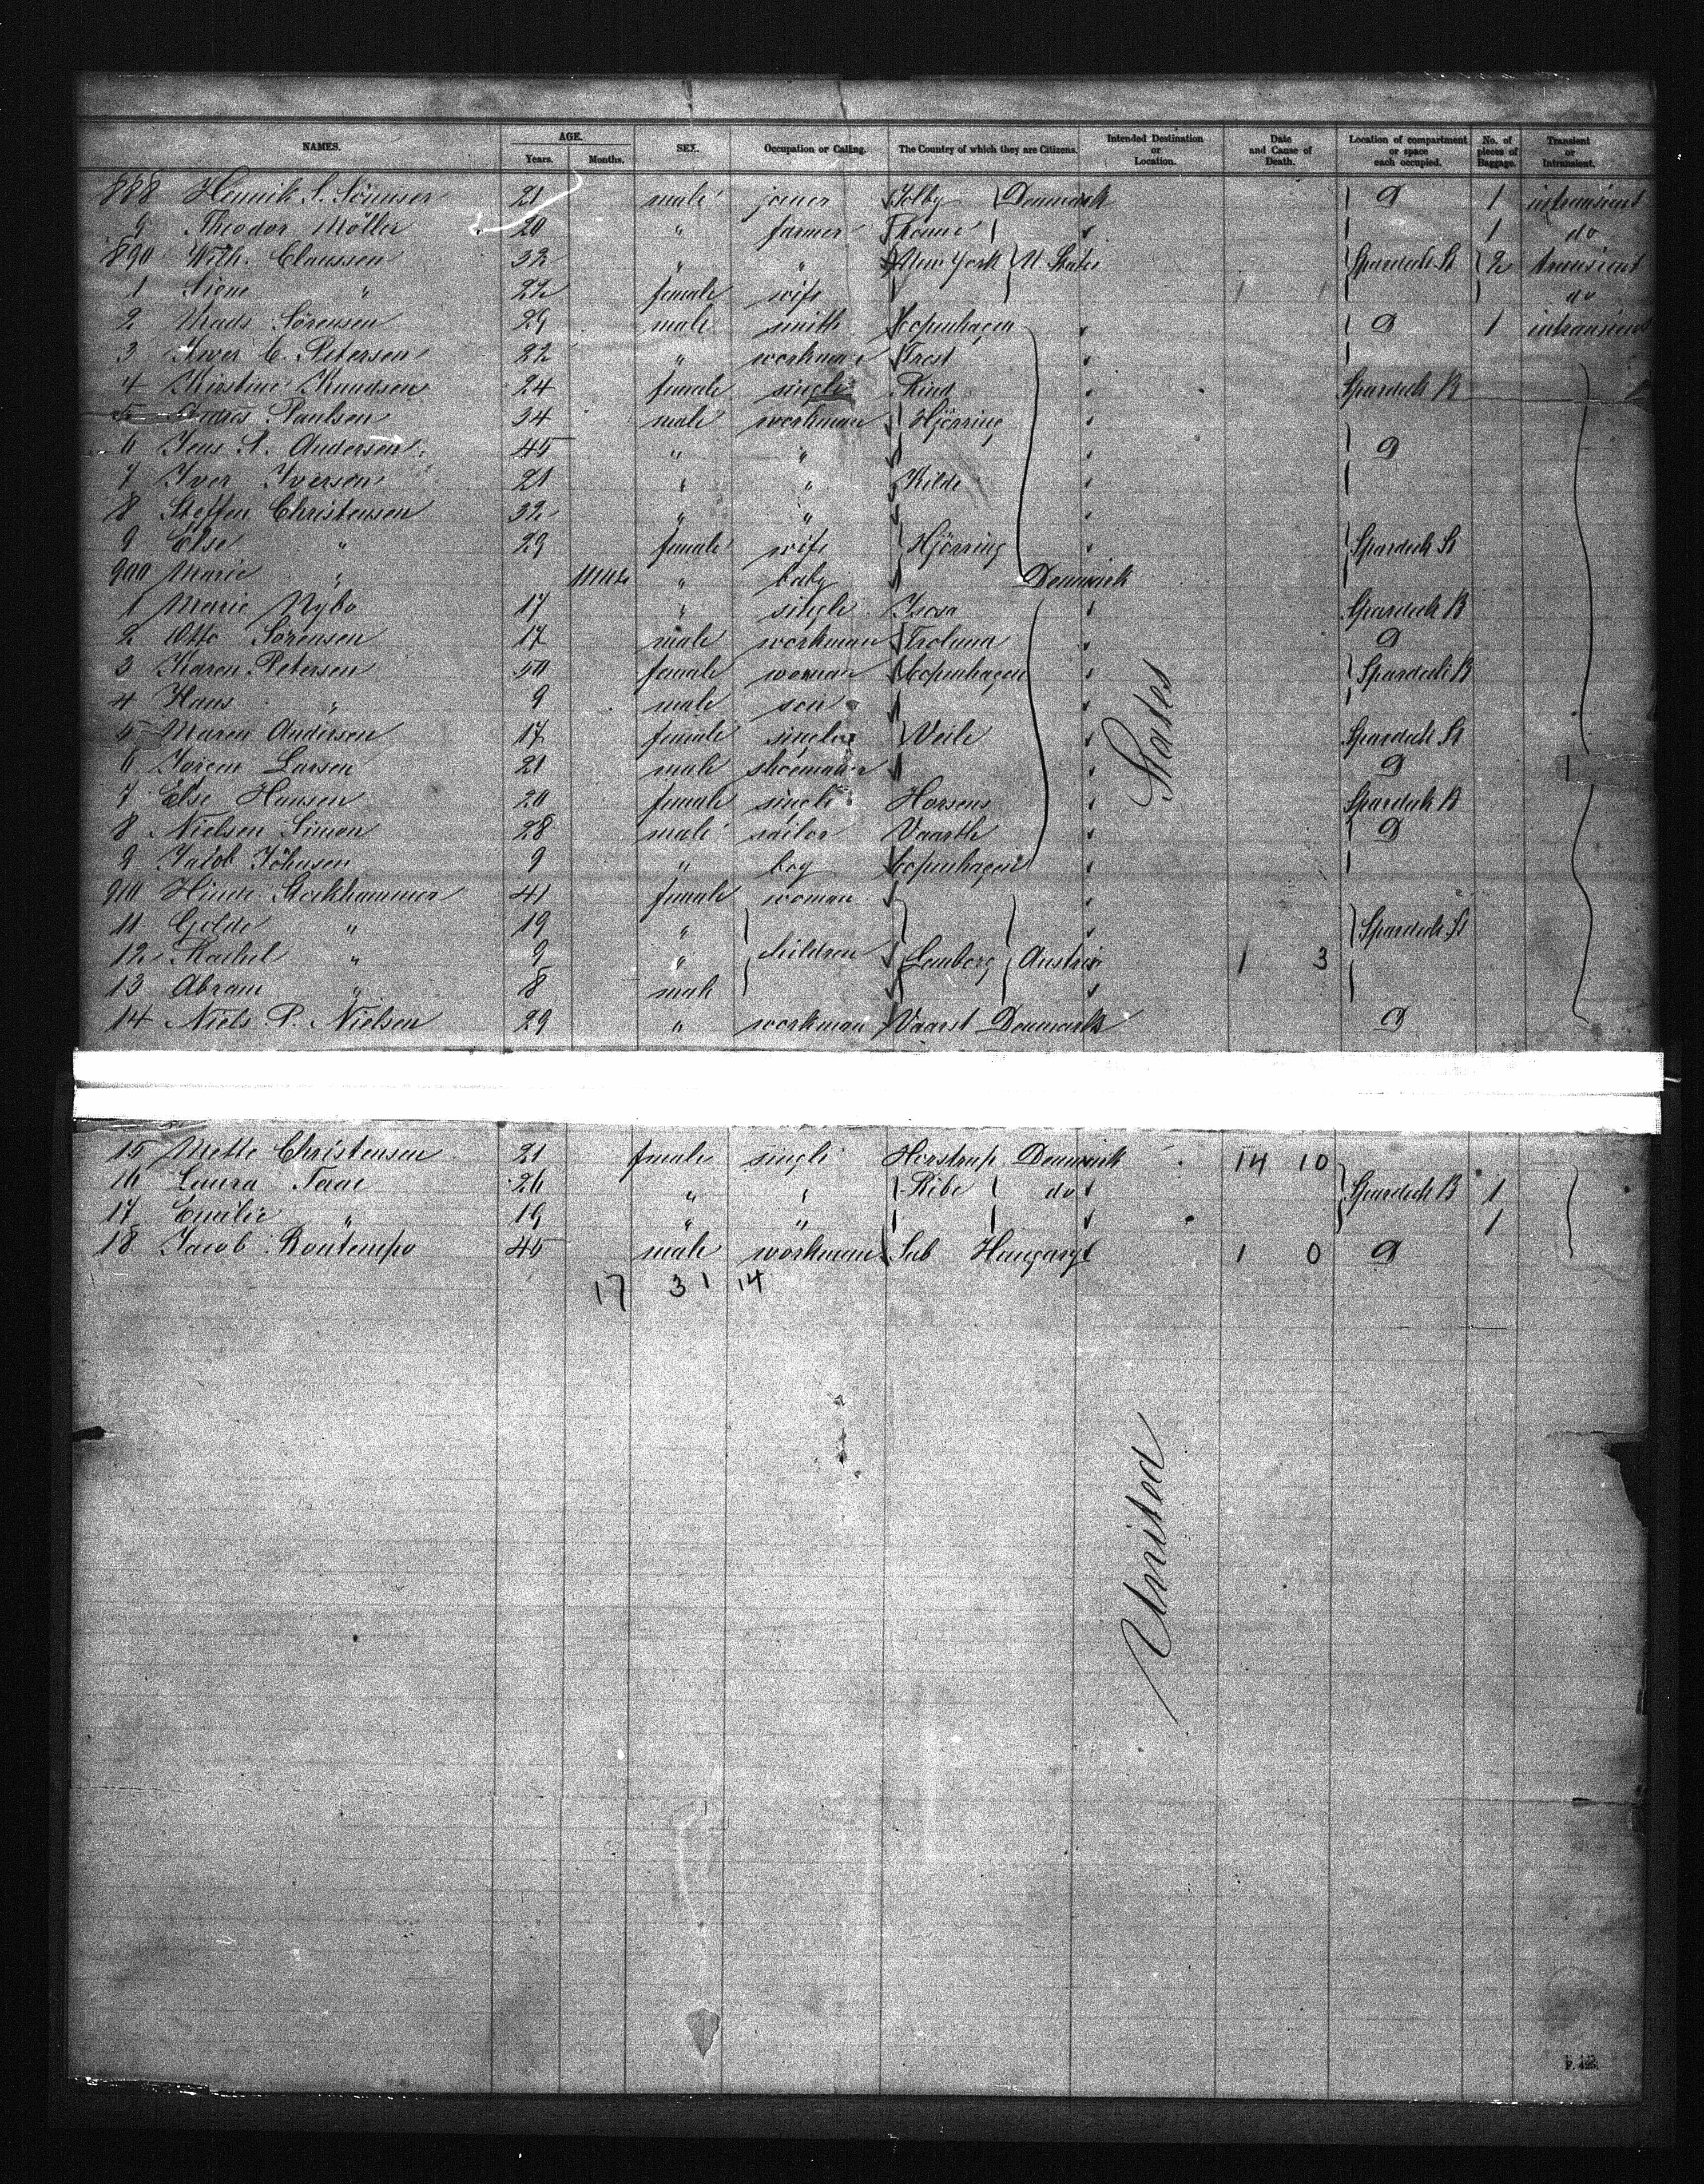 NAMES. AGE. Years. Months. SEX. Occupation or Calling. The Country of which they are Citizens. Intended Destination or Location. Date and Cause of Death. Location of compartment or space each occupied. No. of pieces of Baggage. Transient or Intransient.
888 Henrik S. 21 male joiner Denmark D 1 intransient
9 Theodor Möller 20 " farmer 1 do
890 Wilh. Claussen 32 " " New York U. States Spardeck St 2 transient
1 Signe " 22 female wife do
2 Mads Sörensen 29 male smith Copenhagen D 1 intransient
3 Iwer C. Petersen 22 " workman Trest
4 Kirstine Knudsen 24 female single Rind Spardeck B
5 Paulsen 34 male workman Hjörring
6 Jens P. Andersen 45 " " D
7 Iver Iversen 21 " " Kilde
8 Steffen Christensen 32 " "
9 Else " 29 female wife Hjörring Spardeck St
900 Marie " " baby Denmark
1 Marie Nybo 17 " single Spardeck B
2 Otto Sörensen 17 male workman D
3 Karen Petersen 50 female woman Copenhagen Spardeck B
4 Hans " 9 male son
5 Maren Andersen 17 female single Veile Spardeck St
6 Larsen 21 male D
7 Else Hansen 20 female single Horsens Spardeck B
8 Nielsen Simon 28 male sailor D
9 Jacob Johnsen 9 " boy Copenhagen
910 Hinde Stockhammer 41 female woman
11 Golde " 19 " Spardeck St
12 Rachel " 9 " children Lemberg Austria 1 3
13 Abram " 8 male
14 Niels P. Nielsen 29 " workman Vaarst Denmark D
15 Mette Christensen 21 female single Herstrup Denmark 14 10
16 Laura 26 " " Ribe do Spardeck B 1
17 Emilie " 19 " " 1
18 Jacob Bontempo 45 male workman Hungary 1 0 D
17 31 14
United States
F. 423.